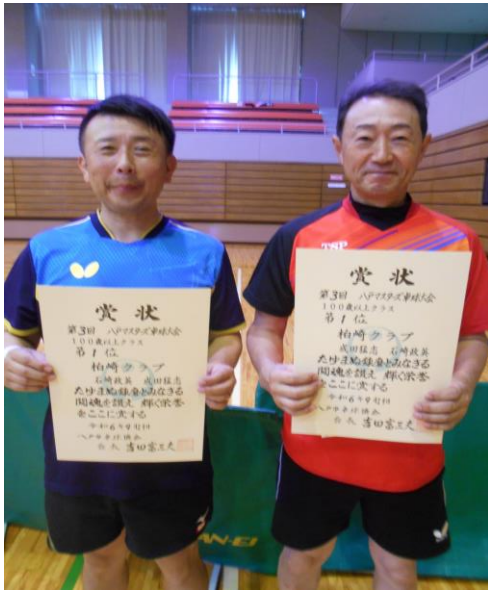 賞状
第3回 八戸マスターズ卓球大会
100歳以上クラス
第1位
柏崎クラブ
石崎政英 成田猛志
たゆまぬ錬磨とみなぎる
闘魂を讃え 輝く栄誉
をここに賞する
令和6年
八戸卓球協会
会長 吉田富三夫
TSP
賞状
第3回 八戸マスターズ卓球大会
100歳以上クラス
第1位
柏崎クラブ
成田猛志 石崎政英
たゆまぬ錬磨とみなぎる
闘魂を讃え 輝く栄誉
をここに賞する
令和6年
八戸卓球協会
会長 吉田富三夫
AN-EI